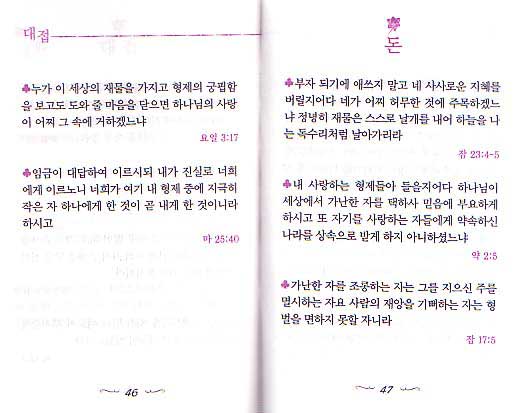 대접
♣누가 이 세상의 재물을 가지고 형제의 궁핍함
을 보고도 도와 줄 마음을 닫으면 하나님의 사랑
이 어찌 그 속에 거하겠느냐
요일 3:17
♣임금이 대답하여 이르시되 내가 진실로 너희
에게 이르노니 너희가 여기 내 형제 중에 지극히
작은 자 하나에게 한 것이 곧 내게 한 것이니라
하시고
마 25:40
46
돈
♣부자 되기에 애쓰지 말고 네 사사로운 지혜를
버릴지어다 네가 어찌 허무한 것에 주목하겠느
냐 정녕히 재물은 스스로 날개를 내어 하늘을 나
는 독수리처럼 날아가리라
잠 23:4-5
♣내 사랑하는 형제들아 들을지어다 하나님이
세상에서 가난한 자를 택하사 믿음에 부요하게
하시고 또 자기를 사랑하는 자들에게 약속하신
나라를 상속으로 받게 하지 아니하셨느냐
약 2:5
♣가난한 자를 조롱하는 자는 그를 지으신 주를
멸시하는 자요 사람의 재앙을 기뻐하는 자는 형
벌을 면하지 못할 자니라
잠 17:5
47